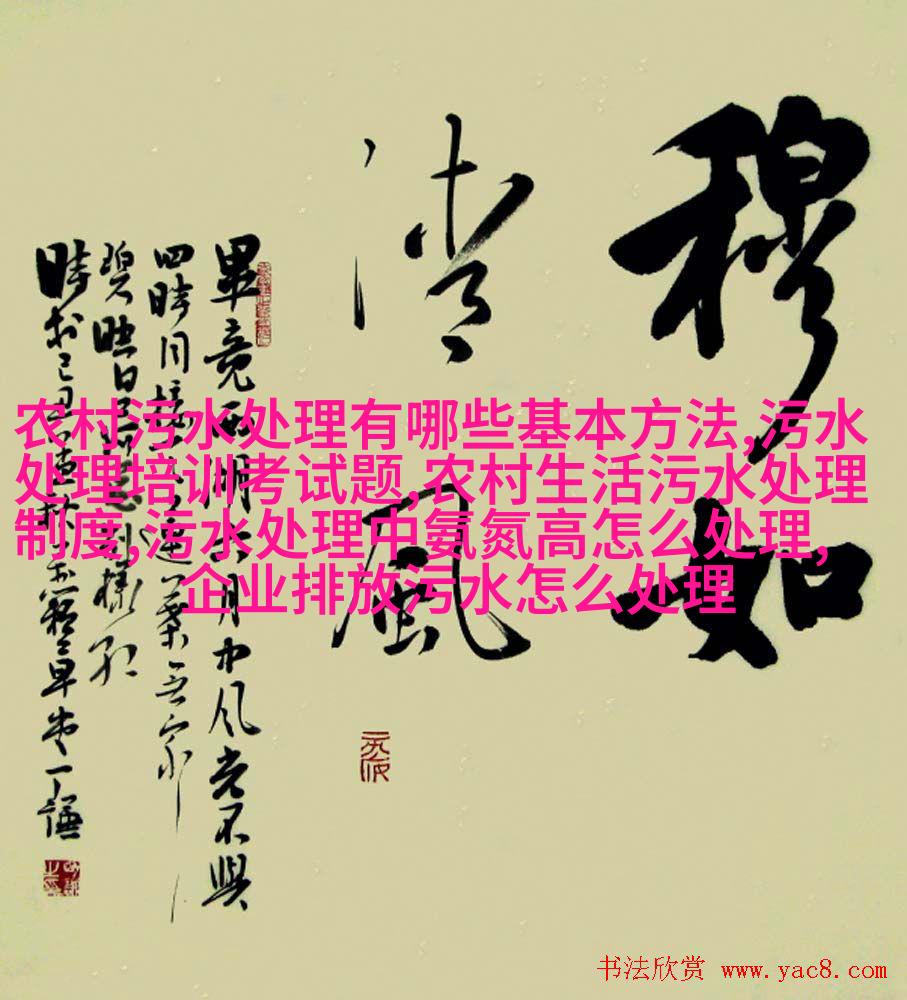 穆如
清風
畢竟西湖六月中风光不與
四時同接天蓮葉无穷
碧映日荷花别樣红
時於己丑
一謙
农村污水处理有哪些基本方法,污水
处理培训考试题,农村生活污水处理
制度,污水处理中氨氮高怎么处理,
企业排放污水怎么处理
书法欣赏 www.yac8.com